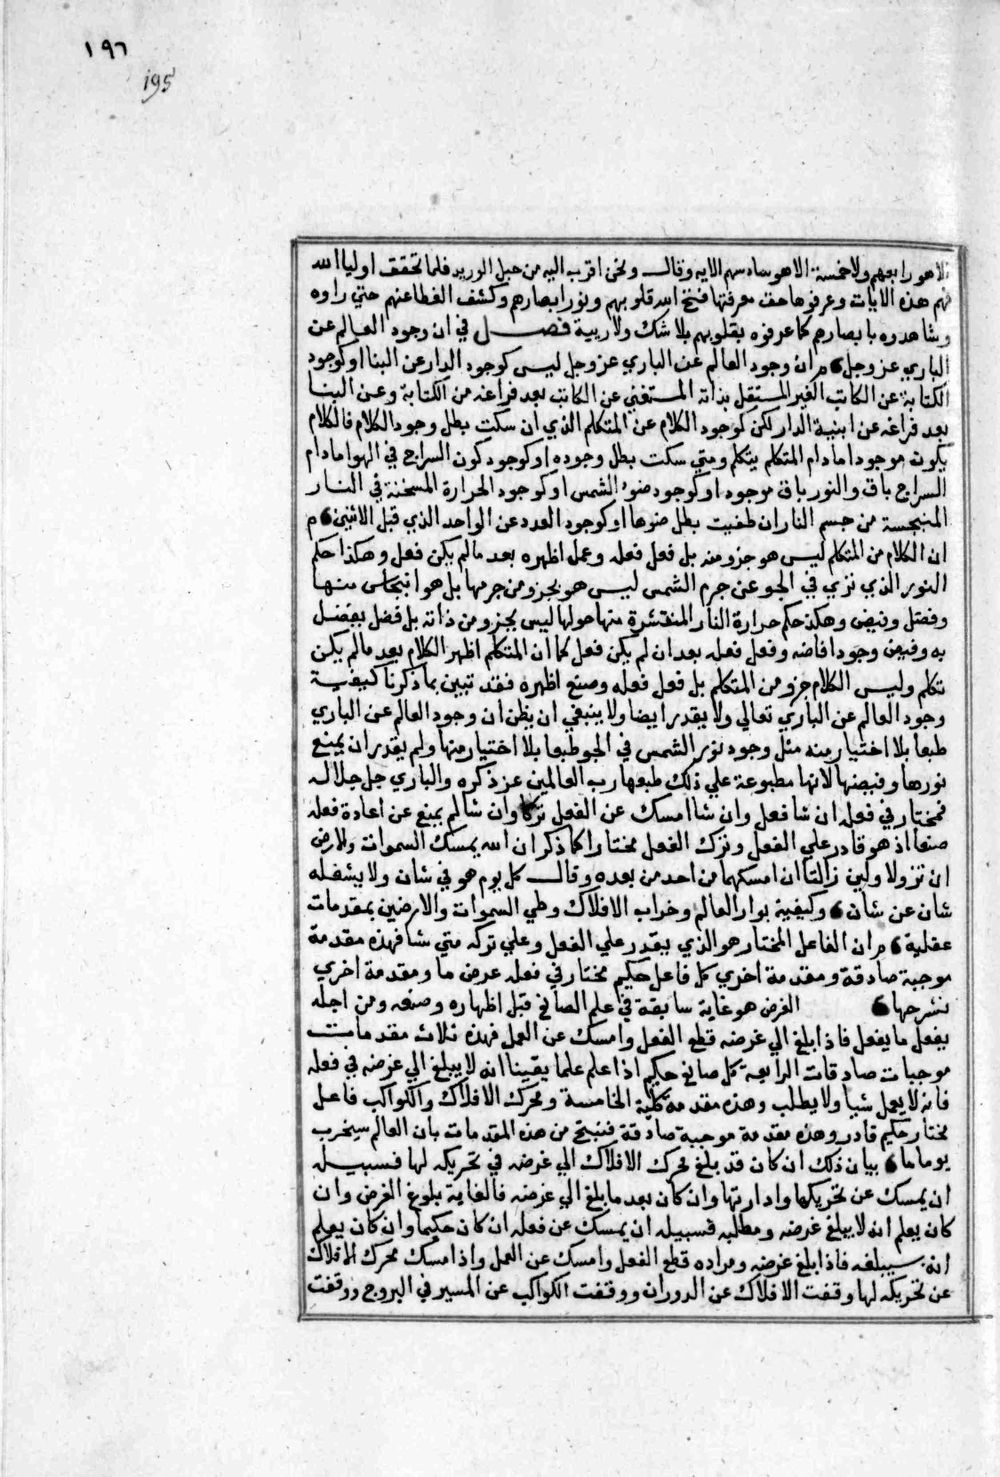 ١٩٦
195
الا هو رابعهم ولا خمسة الا هو سادسهم الايه وقال ونحن اقرب اليه من حبل الوريد فلما تحقق اوليا الله
فهم هذه الايات وعرفوها حق معرفتها فتح الله قلوبهم ونور ابصارهم وكشف الغطا عنهم حتي راوه
وشاهدوه بابصارهم كما عرفوه بقلوبهم بلا شك ولا ريبة فصل في ان وجود العالم عن
الباري عز وجل م ان وجود العالم عن الباري عز وجل ليس كوجود الدار عن البنا او كوجود
الكتابة عن الكاتب الغير المستقل بذاته المستغني عن الكاتب بعد فراغه من الكتابة وعن البنا
بعد فراغه عن ابنية الدار لكن كوجود الكلام عن المتكلم الذي ان سكت بطل وجود الكلام فالكلام
يكون موجودا ما دام المتكلم يتكلم ومتي سكت بطل وجوده او كوجود كون السراج في الهوا ما دام
السراج باق والنور باق موجود او كوجود ضو الشمس او كوجود الحرارة المسخنة في النار
المنبجسة من جسم النار ان طفيت بطل ضوها او كوجود العدد عن الواحد الذي قبل الاثنين م
ان الكلام من المتكلم ليس هو جزو منه بل فعل فعله وعمل اظهره بعد ما لم يكن فعل وهكذا حكم
النور الذي نري في الجو عن جرم الشمس ليس هو بجزو من جرمها بل هو انبجاس منها
وفضل وفيض وهكذا حكم حرارة النار المنتشرة منها حولها ليس بجزو من ذاته بل فضل يفضل
به وفيض وجود افاضه وفعل فعله بعد ان لم يكن فعل كما ان المتكلم اظهر الكلام بعد ما لم يكن
تكلم وليس الكلام جزو من المتكلم بل فعل فعله وصنع اظهره فقد تبين بما ذكرنا كيفية
وجود العالم عن الباري تعالي ولا يقدر ايضا ولا ينبغي ان يظن ان وجود العالم عن الباري
طبعا بلا اختيار منه مثل وجود نور الشمس في الجو طبعا بلا اختيار منها ولم يقدر ان يمنع
نورها وفيضها لانها مطبوعة علي ذلك طبعها رب العالمين عز ذكره والباري جل جلاله
فمختار في فعله ان شا فعل وان شا امسك عن الفعل تركا وان شا لم يمنع عن اعادة فعله
صنعا اذ هو قادر علي الفعل وترك الفعل مختارا كما ذكر ان الله يمسك السموات والارض
ان تزولا ولين زالتا ان امسكهما من احد من بعده وقال كل يوم هو في شان ولا يشغله
شان عن شان وكيفية بوار العالم وخراب الافلاك وطي السموات والارضين بمقدمات
عقلية م ان الفاعل المختار هو الذي يقدر علي الفعل وعلي تركه متي شا فهذه مقدمة
موجبة صادقة ومقدمة اخري كل فاعل حكيم مختار في فعله عرض ما ومقدمة اخري
نشرحها الغرض هو غاية سابقة في علم الصانع قبل اظهاره وصنعه ومن اجله
يفعل ما يفعل فاذا بلغ الي غرضه قطع الفعل وامسك عن العمل فهذه ثلاث مقدمات
موجبات صادقات الرابعة كل صانع حكيم اذا علم علما يقينا انه لا يبلغ الي غرضه في فعله
فانه لا يعمل شيا ولا يطلب وهذه مقدمة كلية الخامسة ومحرك الافلاك والكواكب فاعل
مختار حكيم قادر وهذه مقدمة موجبة صادقة فنبتج من هذه المقدمات بان العالم سيخرب
يوما ما بيان ذلك ان كان قد بلغ محرك الافلاك الي غرضه في تحريكه لها فسبيله
ان يمسك عن تحريكها وادارتها وان كان بعد ما بلغ الي غرضه فالغاية بلوغ الغرض وان
كان يعلم انه لا يبلغ غرضه ومطلبه فسبيله ان يمسك عن فعله ان كان حكيما وان كان يعلم
انه سيبلغه فاذا بلغ غرضه ومراده قطع الفعل وامسك عن العمل واذا امسك محرك الافلاك
عن تحريكه لها وقفت الافلاك عن الدوران ووقفت الكواكب عن المسير في البروج ووقفت